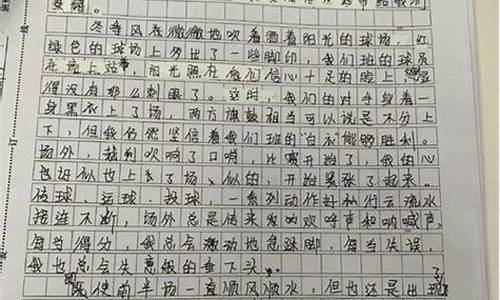 冬季风在微微地吹着洒着阳光的球场，红
绿色的球场上多出了一些脚印，我们班的球员
在场上站，阳光照在他们信心十足的脸上
得没有那么刺眼了。这时，我们的对手身着一
身黑衣上了场，两方旗鼓相当可以说是不分上
下，但我仍然坚信着我们班的“白衣能够胜利。
场外，裁判吹响了口哨，比赛开始了，我的心
也近似也上去了场、似的，开始紧张了起来。
传球、运球、投球，一系列动作好似行云流水
接连不断，场外总是传来为的欢呼声和呐喊声，
每当得分，我总会激动地急跺脚，每当失误，
我也总会失意般的垂下头。
既使前半场一直顺风顺水，但也还是出现